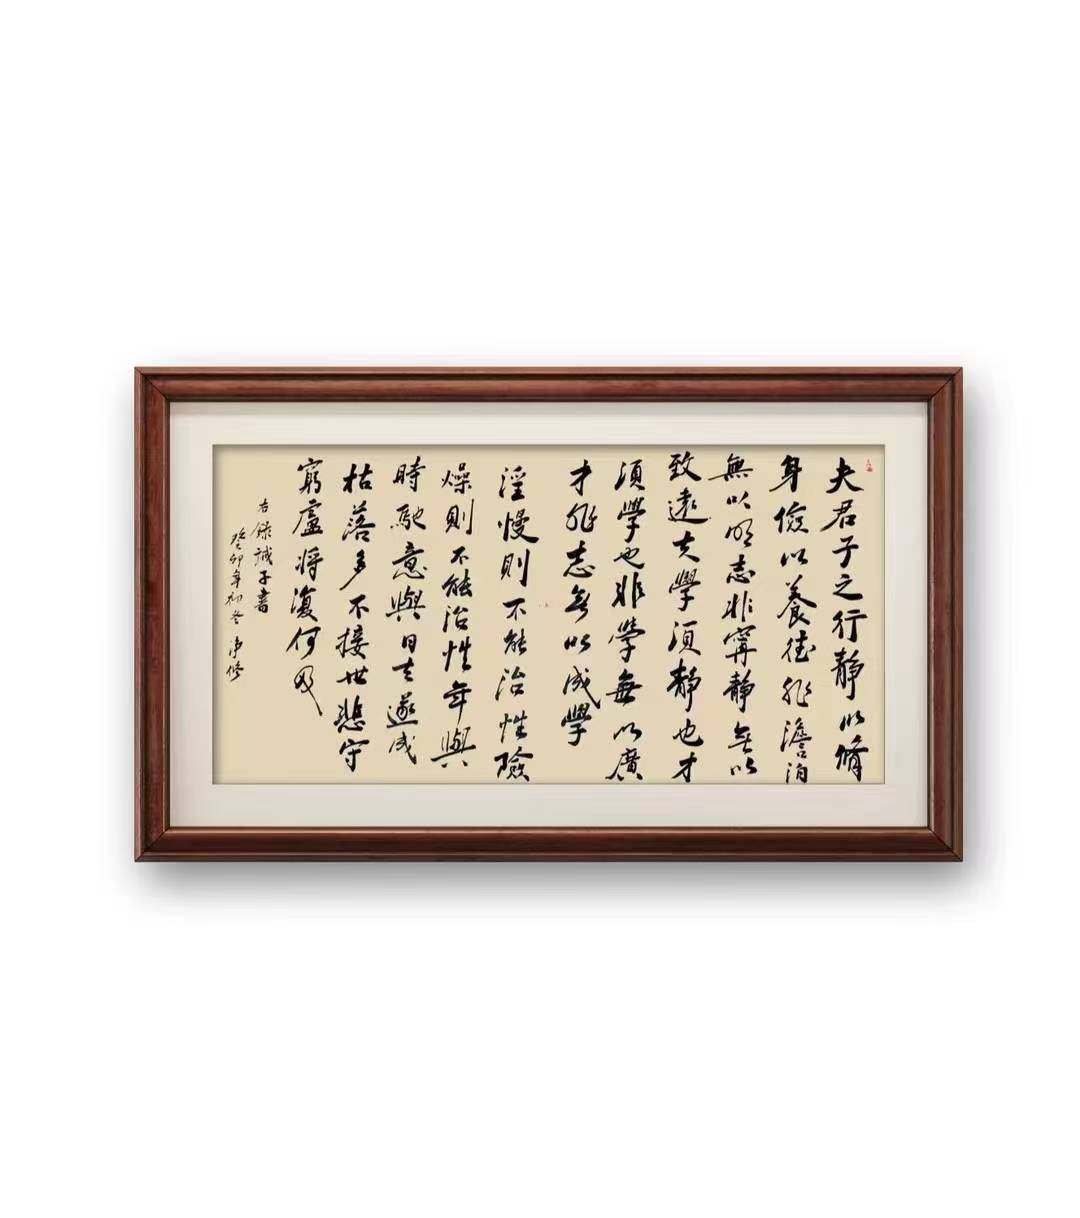 夫君子之行静以脩
身儉以養德非澹泊
無以明志非寧静無以
致遠夫學須静也才
須學也非學無以廣
才非志無以成學
淫慢則不能治性險
燥則不能治性年與
時馳意與日去遂成
枯落多不接世悲守
窮廬将復何及
右錄誡子書
癸卯年初冬 淨修